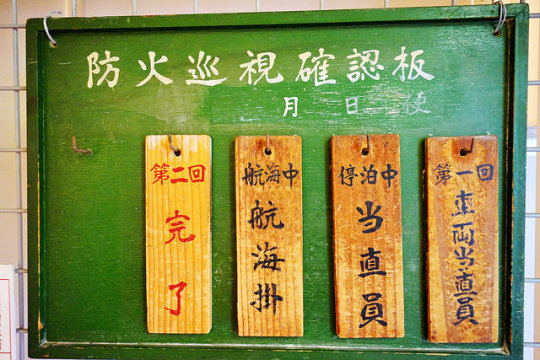 防火巡視確認板
月 日 便
第一回
車両当直員
停泊中
当直員
航海中
航海掛
第二回
完了